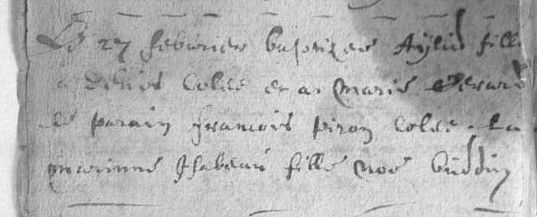 Le 27 febvrier baptizee Aylid fille
a Denis Colee et a Marie Gerard
le parain francois piron Colee. La
marinne Isabeau fille noe buddin